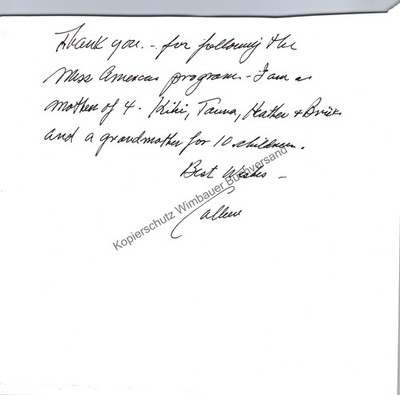 Thank you - for following the
Miss America program - I am a
mother of 4. Kiki, Tauna, Heather & Brinks
and a grandmother for 10 children.
Best Wishes -
Colleen
Kopierschutz Wimbauer Buchversand